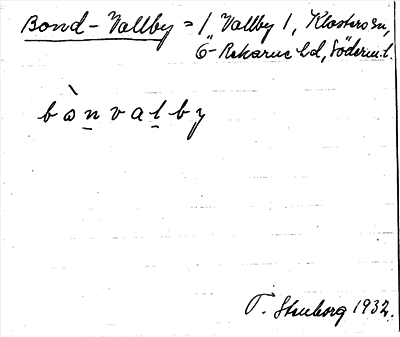 Bond-Vallby = 1/„ Vallby 1, Klosters sn,
Ö-Rekarne hd, Söderm.l.
bò̀n̲va̲ḻby
T. Stenborg 1932.